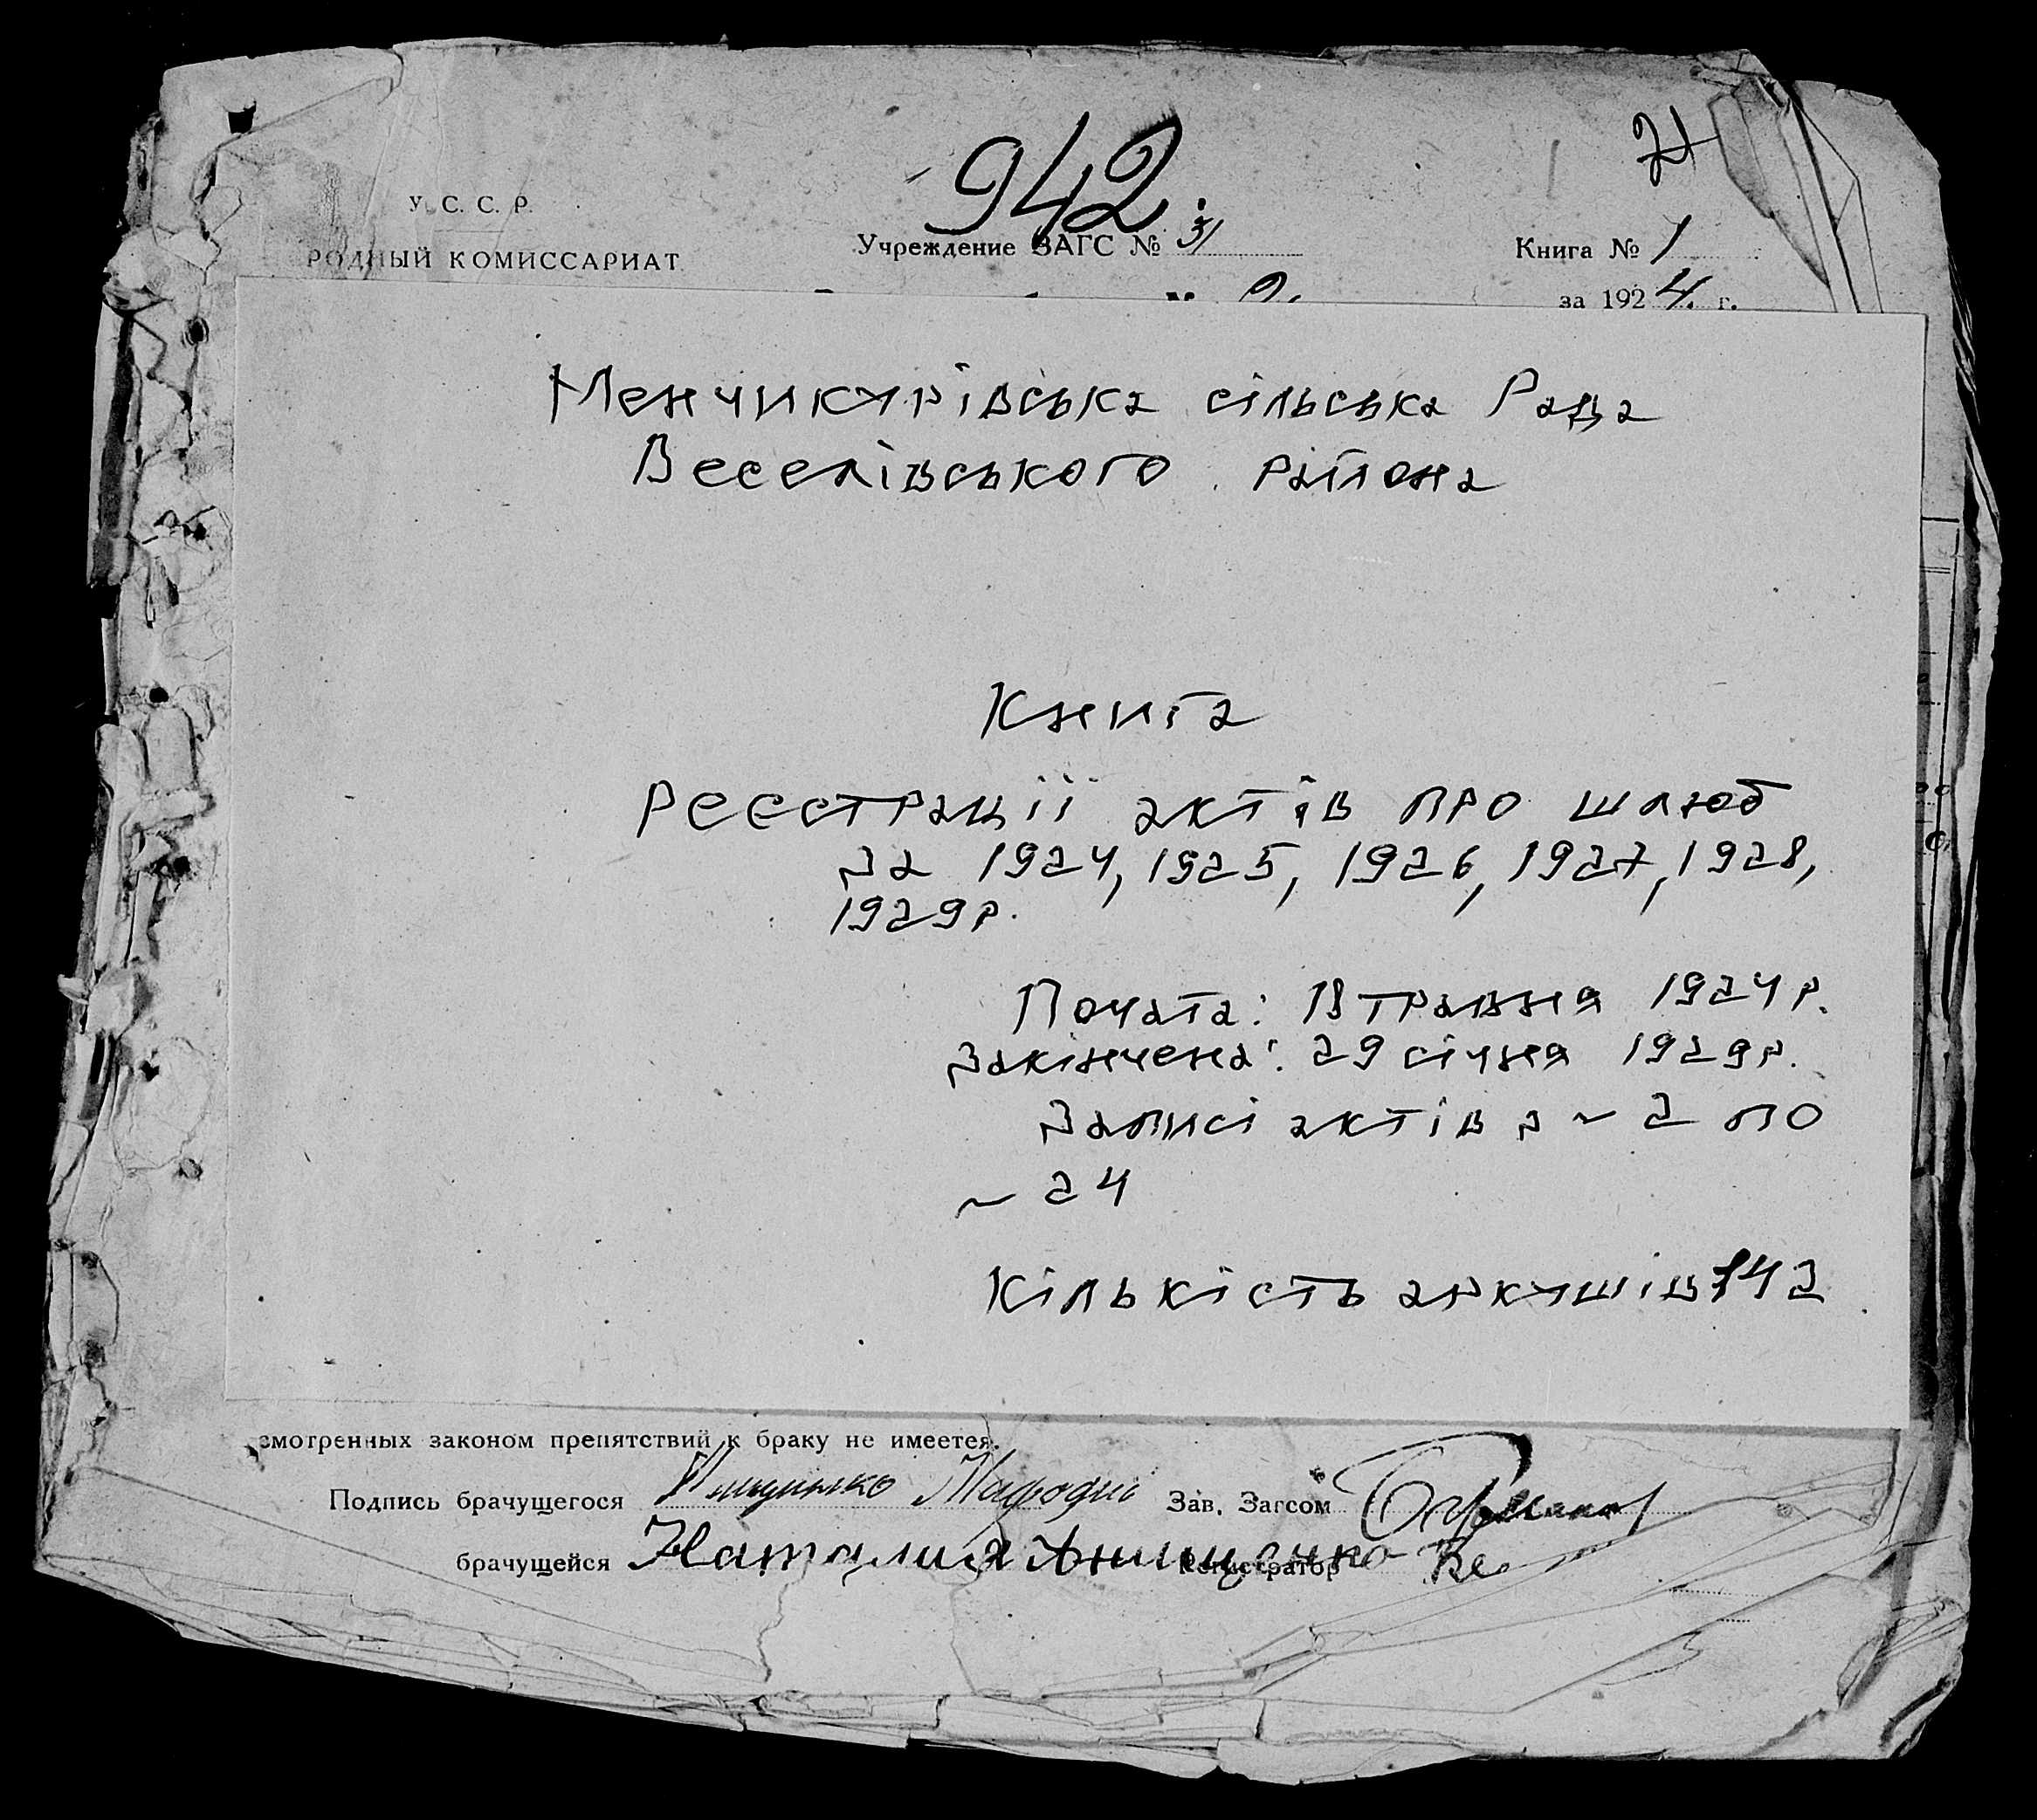 942.
У. С. С. Р.
РОДНЫЙ КОМИССАРИАТ
Учреждение ЗАГС № 31
Книга № 1
за 1924. г.
Менчикурівська сільська Рада
Веселівського района
Книга
Реєстрації актів про шлюб
за 1924, 1925, 1926, 1927, 1928,
1929 р.
Почата: 18 травня 1924 р.
Закінчена: 29 січня 1929 р.
Записі актів з ~ 2 по
~ 24
Кількість аркушів 142
смотренных законом препятствий к браку не имеется.
Подпись брачущегося
Зав. Загсом
брачущейся Наталия Анищенко Регистратор